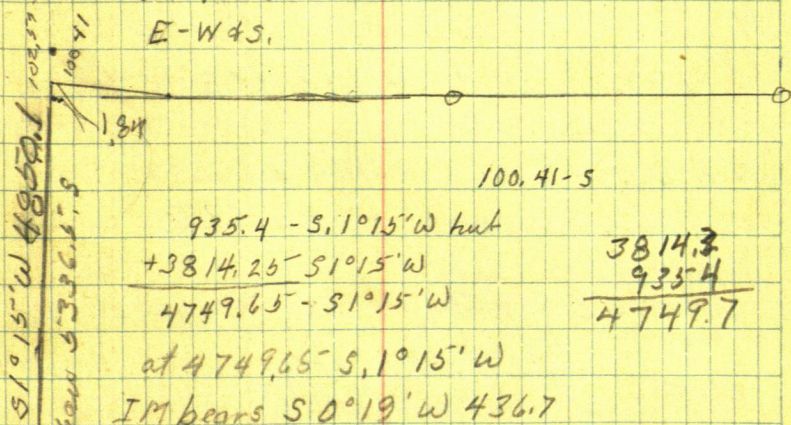 E-W & S.
102.55
100.41
1.84
S1°15'W 4850.1
5336.5. S
100.41-S
935.4 - S. 1°15'W hub
+3814.25 S1°15'W
4749.65 - S1°15'W
3814.3
935.4
4749.7
at 4749.65 S. 1°15'W
IM bears S 0°19'W 436.7